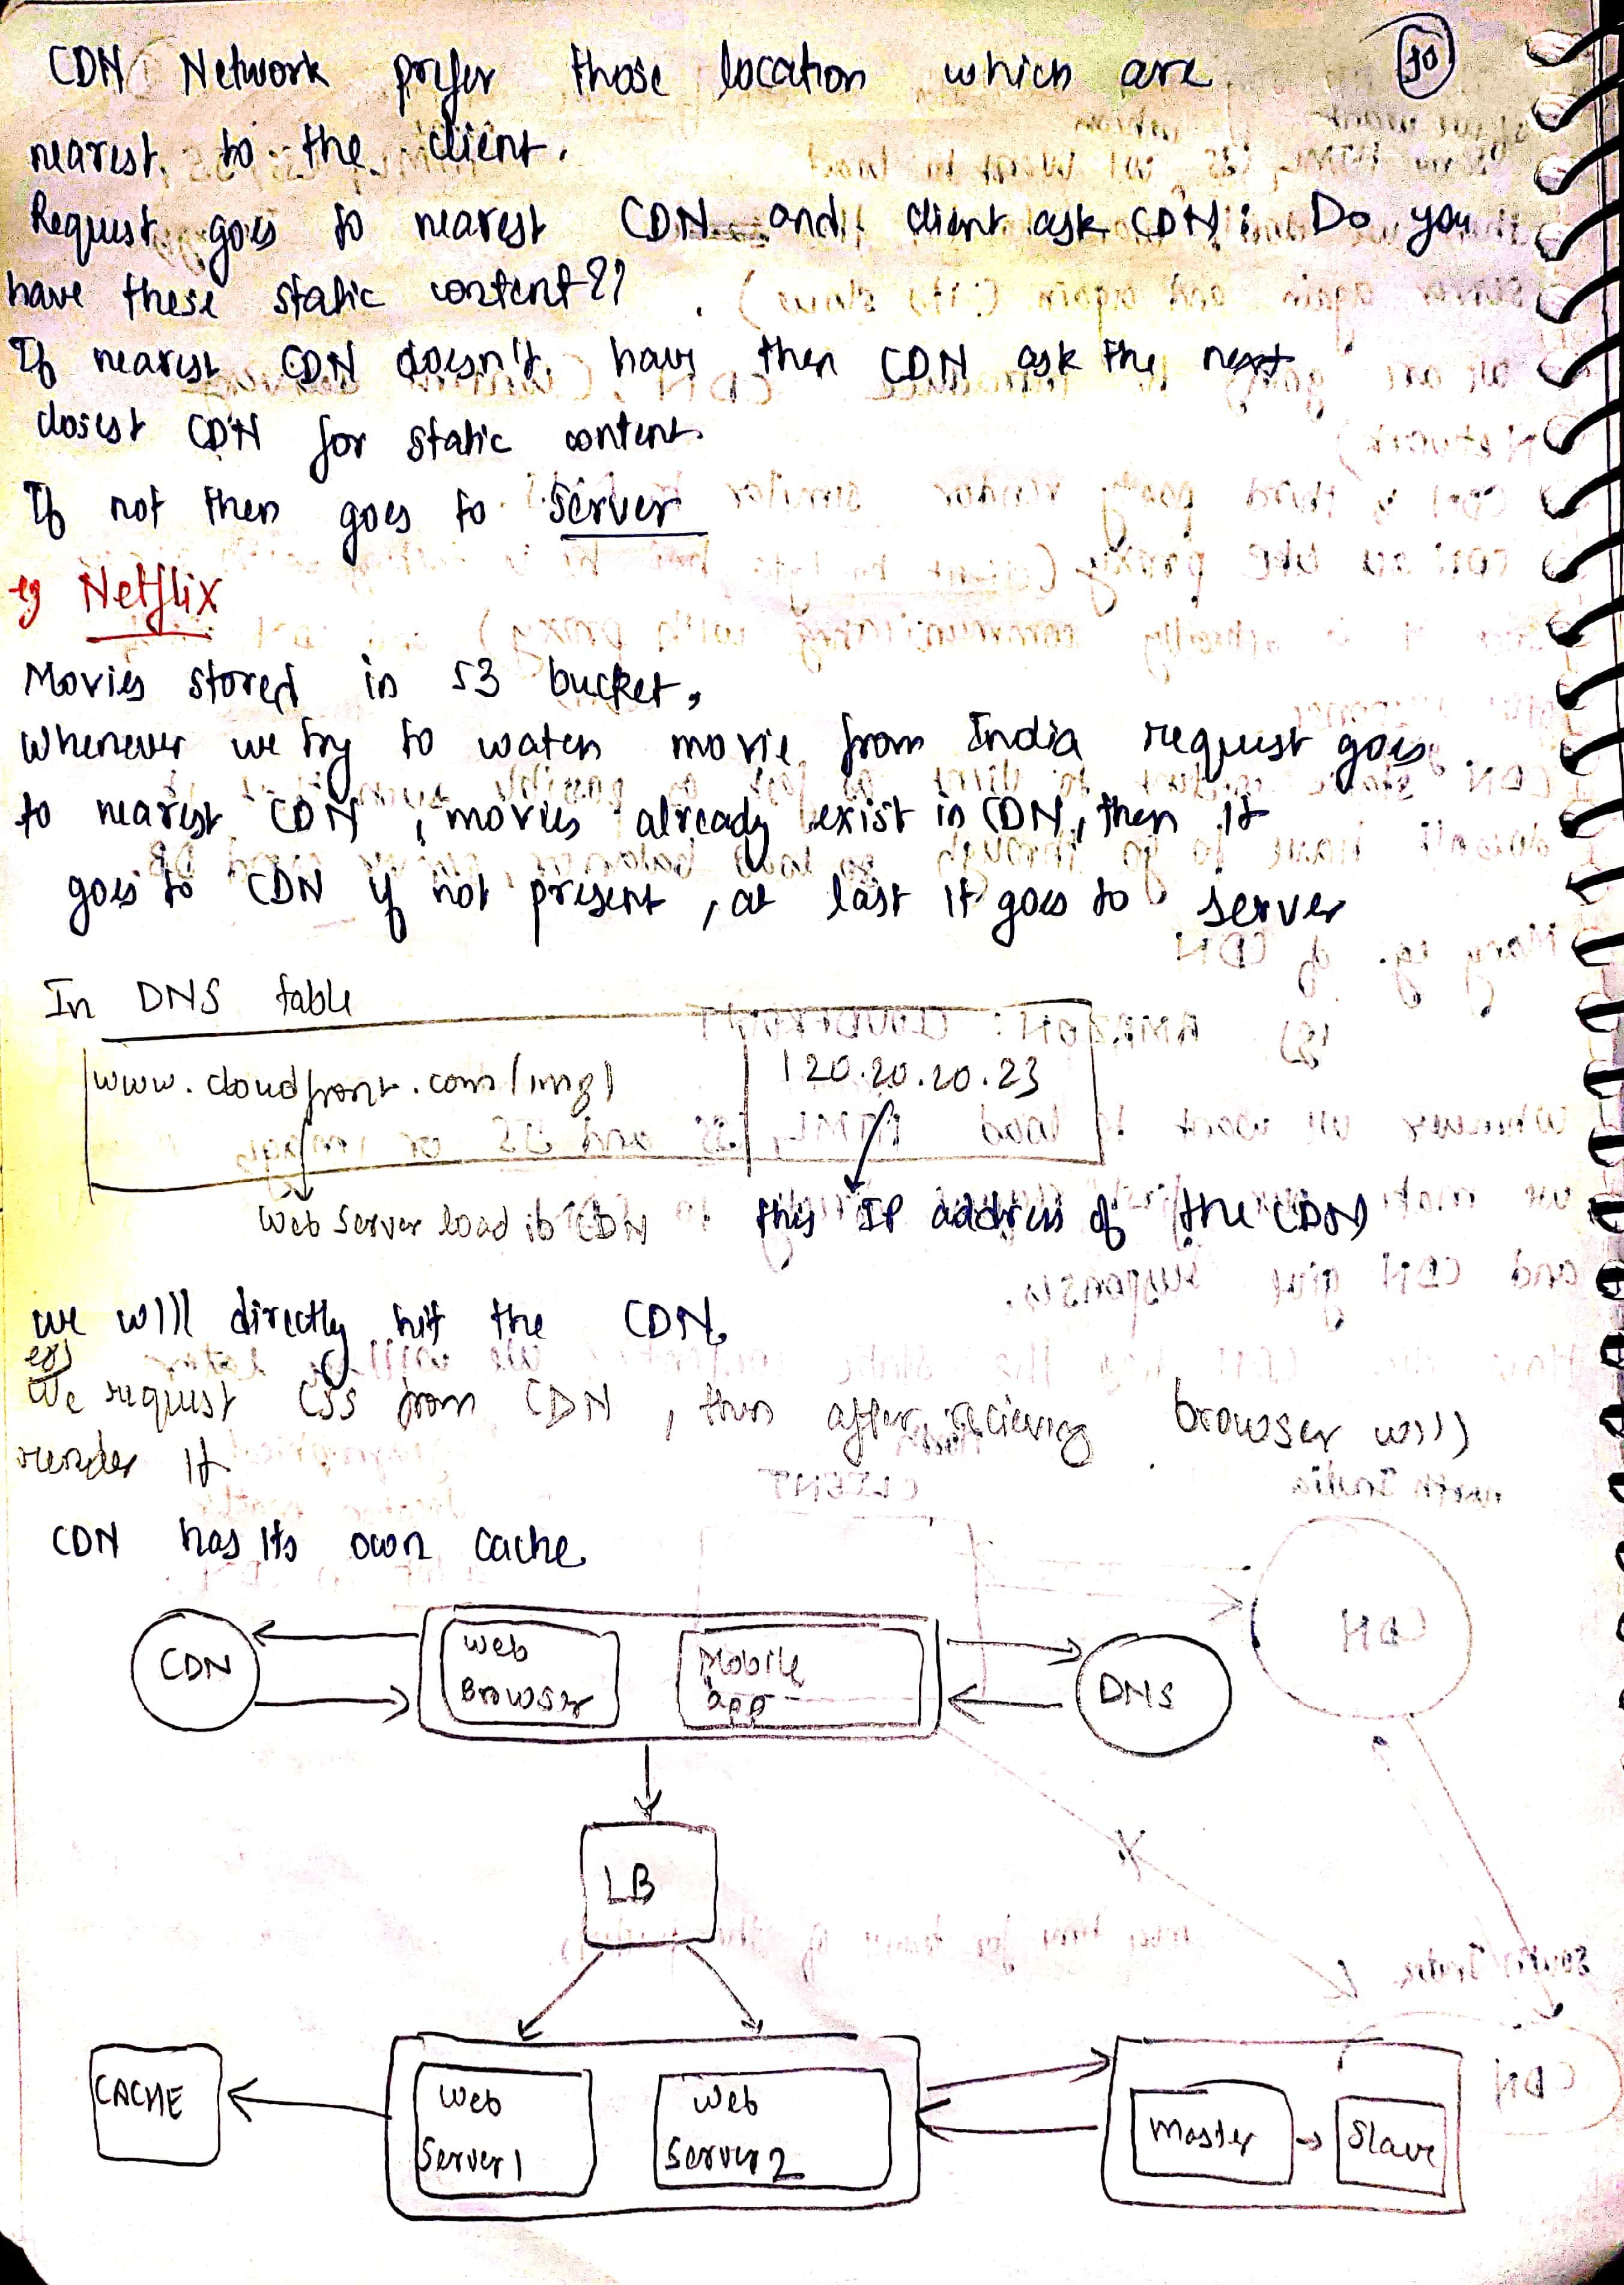 CDN Network prefer those location which are
30
nearest to the client.
Request goes to nearest CDN and client ask CDN: Do you
have these static content??
If nearest CDN doesn't have then CDN ask the next
closest CDN for static content.
If not then goes to server
eg Netflix
Movies stored in S3 bucket,
Whenever we try to watch movie from India request goes
to nearest CDN, movies already exist in CDN, then it
goes to CDN if not present, at last it goes to server
In DNS table
www.cloudfront.com/img1
120.20.20.23
Web Server load CDN
this IP address of the CDN
we will directly hit the CDN.
eg)
We request CSS from CDN, then after recieving browser will
render it
CDN has its own cache
CDN
Web
Browser
Mobile
app
DNS
LB
CACHE
Web
Server1
Web
Server2
Master
Slave